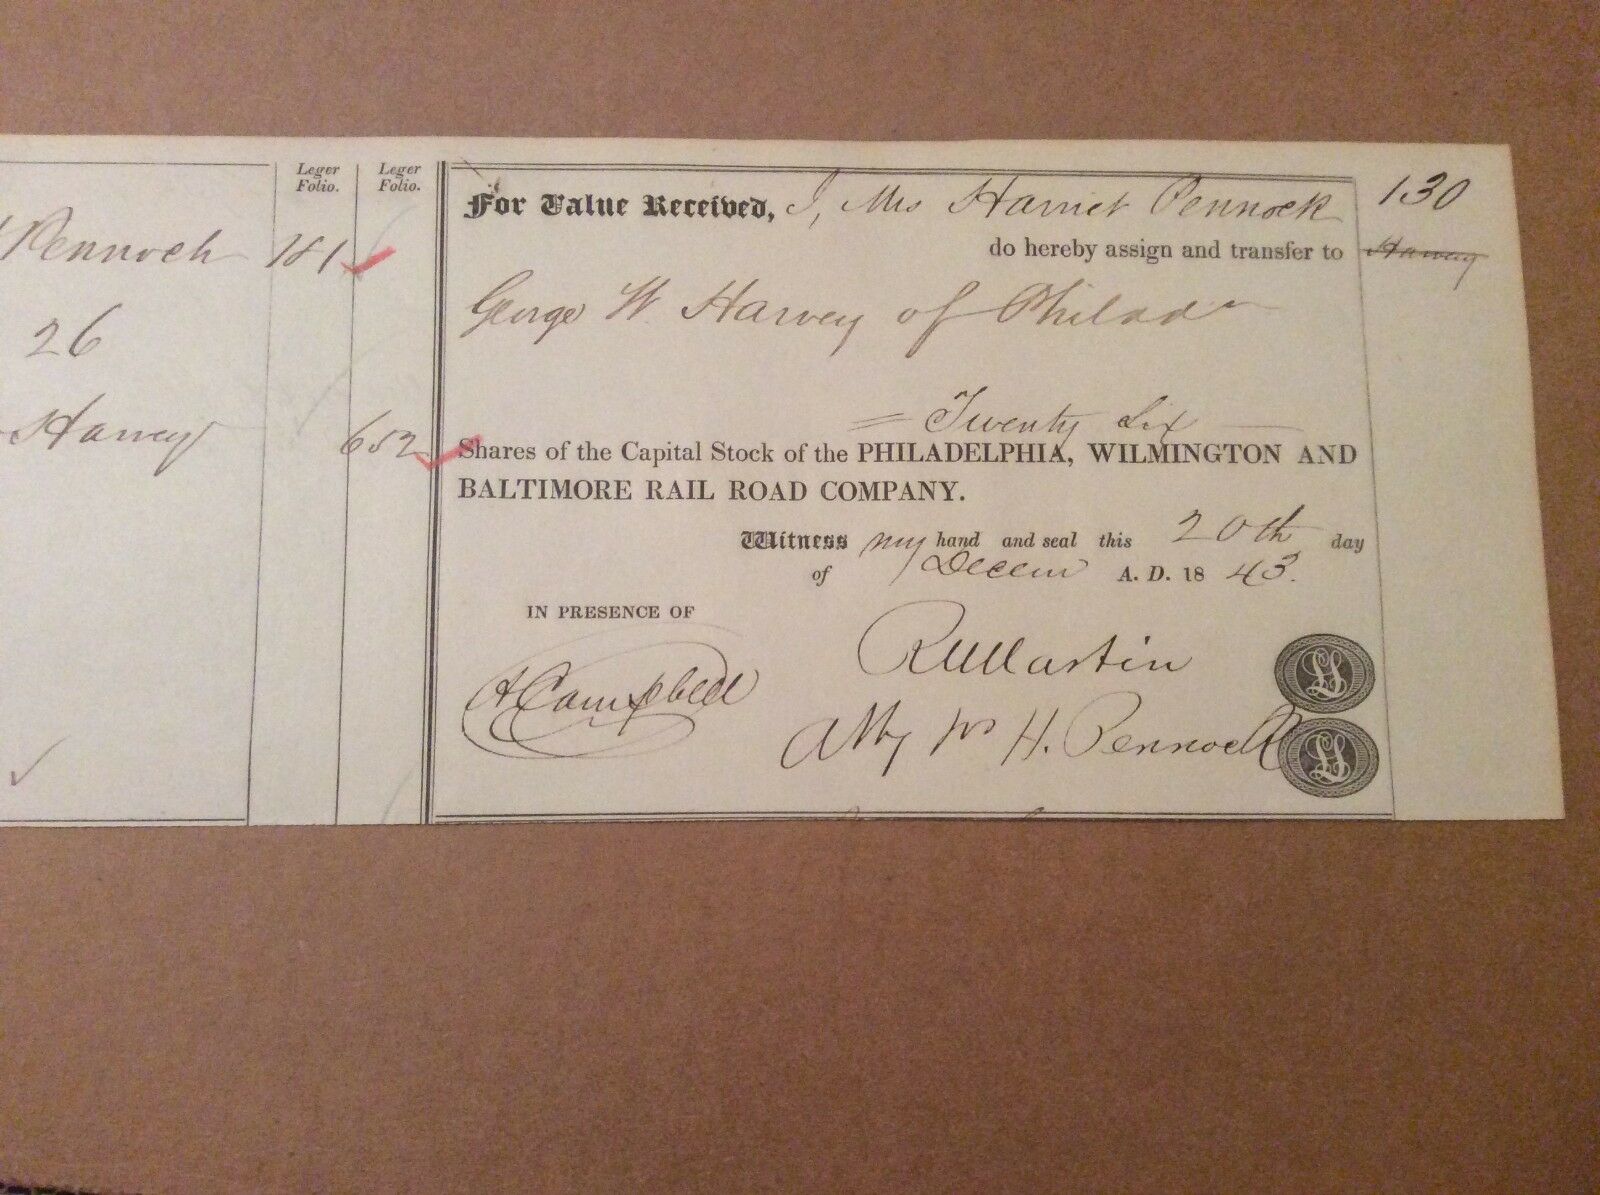 Leger Folio. Leger Folio.
Pennock 181
26
Harvey 652
130
For Value Received, I, Mrs Harriet Pennock
do hereby assign and transfer to Harvey
George W. Harvey of Philada
= Twenty Six
Shares of the Capital Stock of the PHILADELPHIA, WILMINGTON AND
BALTIMORE RAIL ROAD COMPANY.
Witness my hand and seal this 20th day
of Decem A. D. 18 43.
IN PRESENCE OF
A Campbell
RWMartin
Atty for H. Pennock
LS
LS